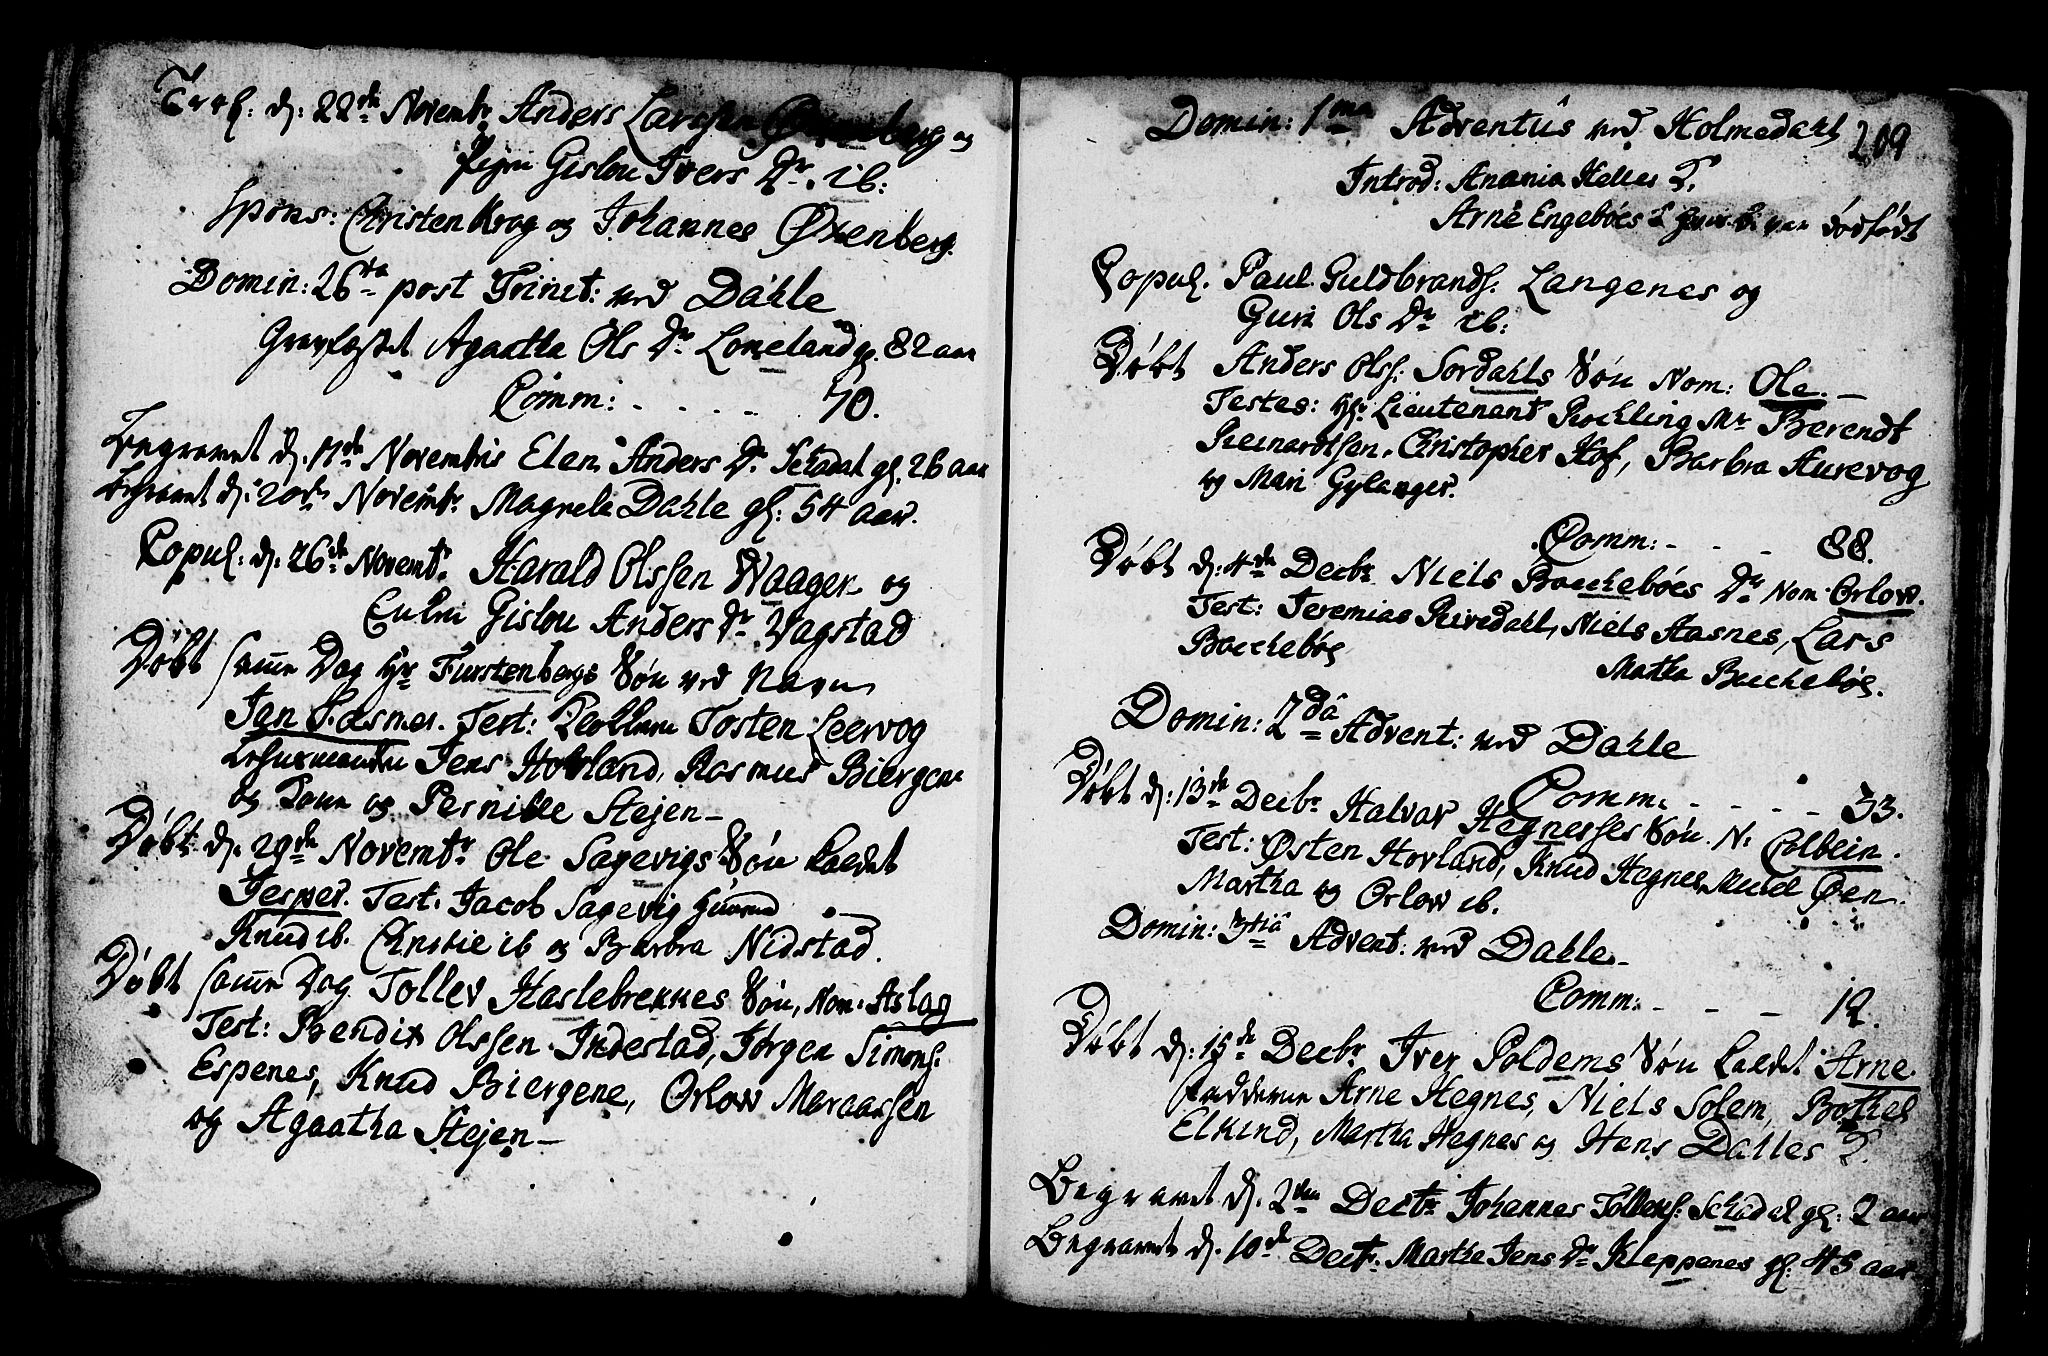 Trol: d: 22de Novembr Anders Larssen Øxenberg og
Pigen Gislou Ivers Dr. ib:
Spons: Christen Krog og Johannes Øxenberg.
Domin: 26ta post Trinit: ved Dahle
Gravfæstet Agaatha Ols Dr Loneland gl. 82 aar
Comm: - - - - 70.
Begravet d. 17de Novembris Elen Anders Dr Schadal gl. 26 aar
Begravet d. 20de Novembr. Magnele Dahle gl: 54 aar.
Copul: d. 26de Novembr. Harald Olssen Waager og
Enken Gislou Anders Dr Vagstad
Døbt samme Dag Hr Furstenbergs Søn ved Navn
Jan Hasmer. Test: Tosten Leervog
Jens Hovland, Rasmus Biergene
og Kone og Pernille Stejen -
Døbt d. 29de Novembr Ole Sagevigs Søn kaldet
Jesper. Test: Jacob Sagevig Gunnid
Knud ib. Christie ib og Barbra Nidstad.
Døbt samme Dag Tollev Haslebrekkes Søn, Nom. Aslag
Test: Bendix Olssen Indestad, Jørgen Simons:
Espenes, Knud Biergene, Orlow Maraassen
og Agaatha Stejen -
209
Domin: 1ma Adventûs ved Holmedahl
Introd: Anania Helles K.
Arne Engebøes K hvis B. var dødfødt
Copul. Paul Guldbrands. Langenes og
Guri Ols Dr ib:
Døbt Anders Ols: Sordahls Søn Nom: Ole. -
Testes: Hr. Lieutenant Rochling Mr Berendt
Reinardtsen, Christopher Hof, Barbra Aurevog
og Mari Gylanger.
Comm: - - - 88.
Døbt d. 4de Decbr Niels Bacchebøes Dr Nom. Orlow.
Test: Jeremias Rivedahl, Niels Aasnes, Lars
Bacchebøe Martha Bacchebøe.
Domin: 2dâ Advent: ved Dahle
Comm: - - - - 33.
Døbt d. 13de Decbr Halvar Hegnesses Søn N: Colbein.
Test: Østen Hovland, Knud Hegnes, Øen.
Martha og Orlow ib.
Domin: 3tiâ Advent: ved Dahle. -
Comm: - - - 12.
Døbt d: 15de Decbr Iver Poldems Søn kaldet Arne.
Fadderne Arne Hegnes, Niels Solem, Bothel
Elkind, Martha Hegnes og Hans Dalles K.
Begravet d. 2den Decbr Johannes Tollevs: Schadal gl: 2 aar
Begravet d. 10de Decbr. Marthe Jens Dr Kleppenes gl: 45 aar